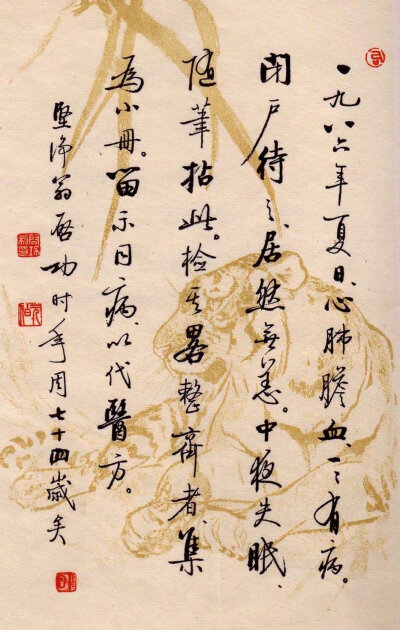 一九八六年夏日、心肺膽血、一一有病。
閉戶待之、居然無恙。中夜失眠、
随筆拈此。检其畧整齊者、集
為小冊。留示同病、以代醫方。
坚净翁启功时年周七十四歲矣